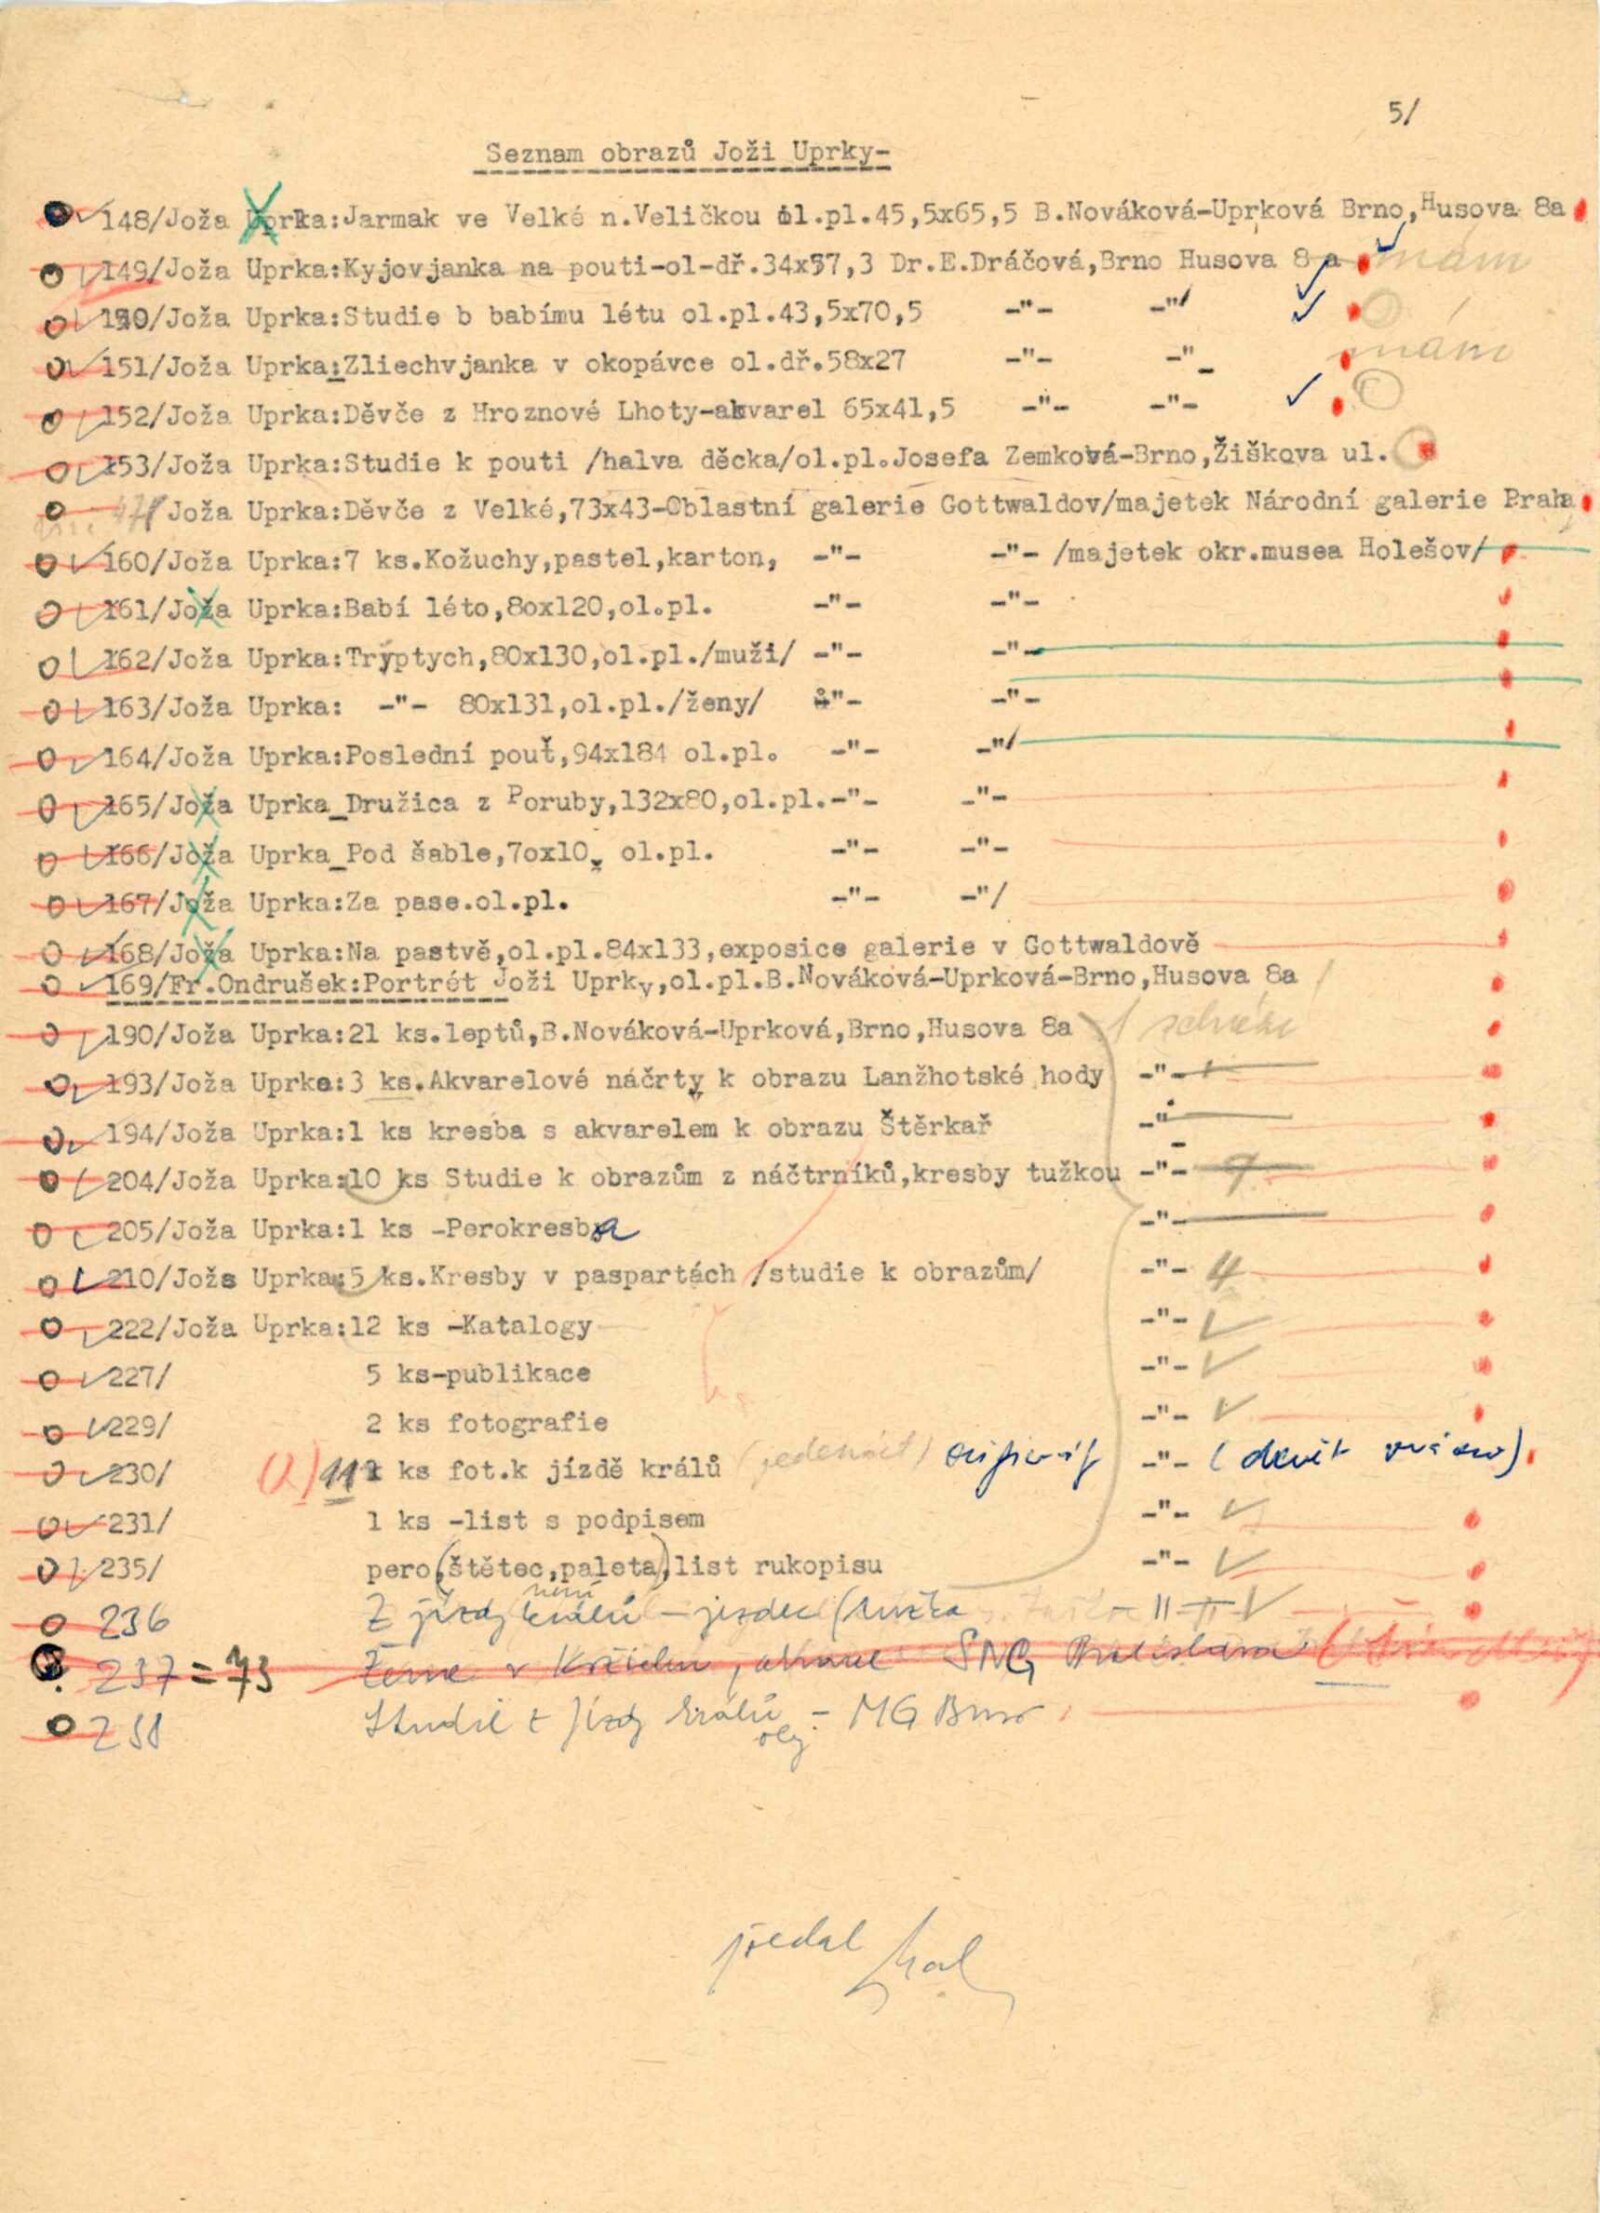 5/
Seznam obrazů Joži Uprky-
148/Joža Uprka:Jarmak ve Velké n.Veličkou ol.pl.45,5x65,5 B.Nováková-Uprková Brno,Husova 8a
149/Joža Uprka:Kyjovjanka na pouti-ol-dř.34x57,3 Dr.E.Dráčová,Brno Husova 8 a mám
150/Joža Uprka:Studie b babímu létu ol.pl.43,5x70,5 -"- -"/
151/Joža Uprka:Zliechvjanka v okopávce ol.dř.58x27 -"- -"- mám
152/Joža Uprka:Děvče z Hroznové Lhoty-akvarel 65x41,5 -"- -"-
153/Joža Uprka:Studie k pouti /halva děcka/ol.pl.Josefa Zemková-Brno,Žiškova ul.
Joža Uprka:Děvče z Velké,73x43-Oblastní galerie Gottwaldov/majetek Národní galerie Praha
160/Joža Uprka:7 ks.Kožuchy,pastel,karton, -"- -"- /majetek okr.musea Holešov/
161/Joža Uprka:Babí léto,80x120,ol.pl. -"- -"-
162/Joža Uprka:Tryptych,80x130,ol.pl./muži/ -"- -"-
163/Joža Uprka: -"- 80x131,ol.pl./ženy/ -"- -"-
164/Joža Uprka:Poslední pouť,94x184 ol.pl. -"- -"/
165/Joža Uprka_Družica z Poruby,132x80,ol.pl.-"- -"-
166/Joža Uprka_Pod šable,70x10, ol.pl. -"- -"-
167/Joža Uprka:Za pase.ol.pl. -"- -"/
168/Joža Uprka:Na pastvě,ol.pl.84x133,exposice galerie v Gottwaldově
169/Fr.Ondrušek:Portrét Joži Uprky,ol.pl.B.Nováková-Uprková-Brno,Husova 8a
190/Joža Uprka:21 ks.leptů,B.Nováková-Uprková,Brno,Husova 8a
193/Joža Uprka:3 ks.Akvarelové náčrty k obrazu Lanžhotské hody -"-
194/Joža Uprka:1 ks kresba s akvarelem k obrazu Štěrkař -"-
204/Joža Uprka:10 ks Studie k obrazům z náčtrníků,kresby tužkou -"- 9
205/Joža Uprka:1 ks -Perokresba -"-
210/Joža Uprka:5 ks.Kresby v paspartách /studie k obrazům/ -"- 4
222/Joža Uprka:12 ks -Katalogy -"-
227/ 5 ks-publikace -"-
229/ 2 ks fotografie -"-
230/ (2) 11 ks fot.k jízdě králů (jedenáct) -"- (devět
231/ 1 ks -list s podpisem -"-
235/ pero,(štětec,paleta),list rukopisu -"-
není
236 Z jízdy králů - jezdec -"-
237=73 SNG Bratislava
238 Studie z Jízdy králů - MG Brno
olej
předal